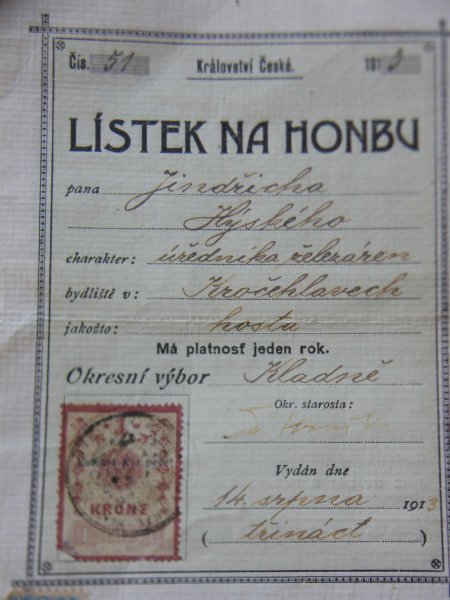 Čís. 51 Království České. 1913
LÍSTEK NA HONBU
pana Jindřicha
Hýského
charakter: úředníka železáren
bydliště v: Kročehlavech
jakožto: hosta
Má platnosť jeden rok.
Okresní výbor Kladně
Okr. starosta:
Vydán dne
14. srpna 1913
(třináct)
1
KRONE